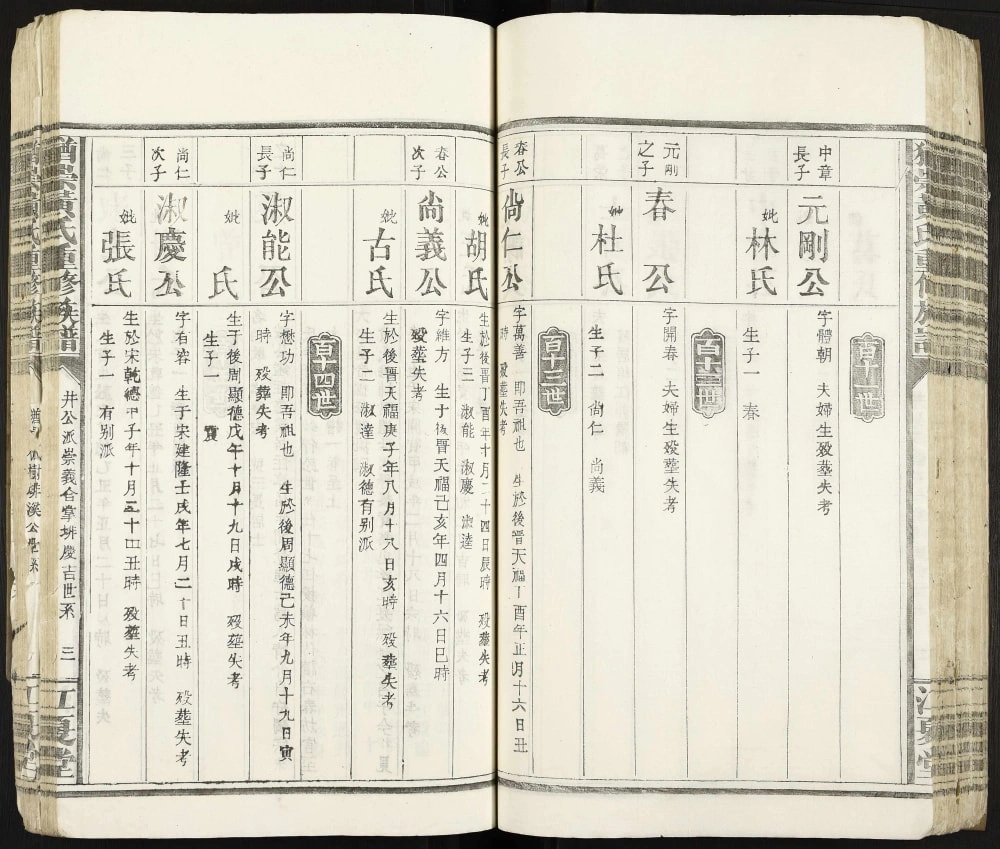 百十一世
中章長子
元剛公
字體朝 夫婦生殁塟失考
妣林氏
生子一 春
百十二世
元剛之子
春公
字開春 夫婦生殁塟失考
妣杜氏
生子二 尙仁 尙義
百十三世
春公長子
尙仁公
字萬善 即吾祖也 生於後晉天福丁酉年正月十六日丑時 殁塟失考
妣胡氏
生於後晉丁酉年十月二十四日辰時 殁塟失考
生子三 淑能 淑慶 淑逵
春公次子
尙義公
字維方 生于後晉天福己亥年四月十六日巳時
殁塟失考
妣古氏
生於後晉天福庚子年八月十八日亥時 殁塟失考
生子二 淑達 淑德有别派
百十四世
尙仁長子
淑能公
字懋功 即吾祖也 生於後周顯德己未年九月十九日寅時 殁葬失考
妣 氏
生于後周顯德戊午年十月十九日戌時 殁塟失考
生子一
尙仁次子
淑慶公
字有容 生于宋建隆壬戌年七月二十日丑時 殁塟失考
妣張氏
生於宋乾德甲子年十月三十四丑時 殁塟失考
生子一 有别派
猶崇黃氏重修族譜
井公派崇義合掌垹慶吉世系
三
江夏堂
江夏堂